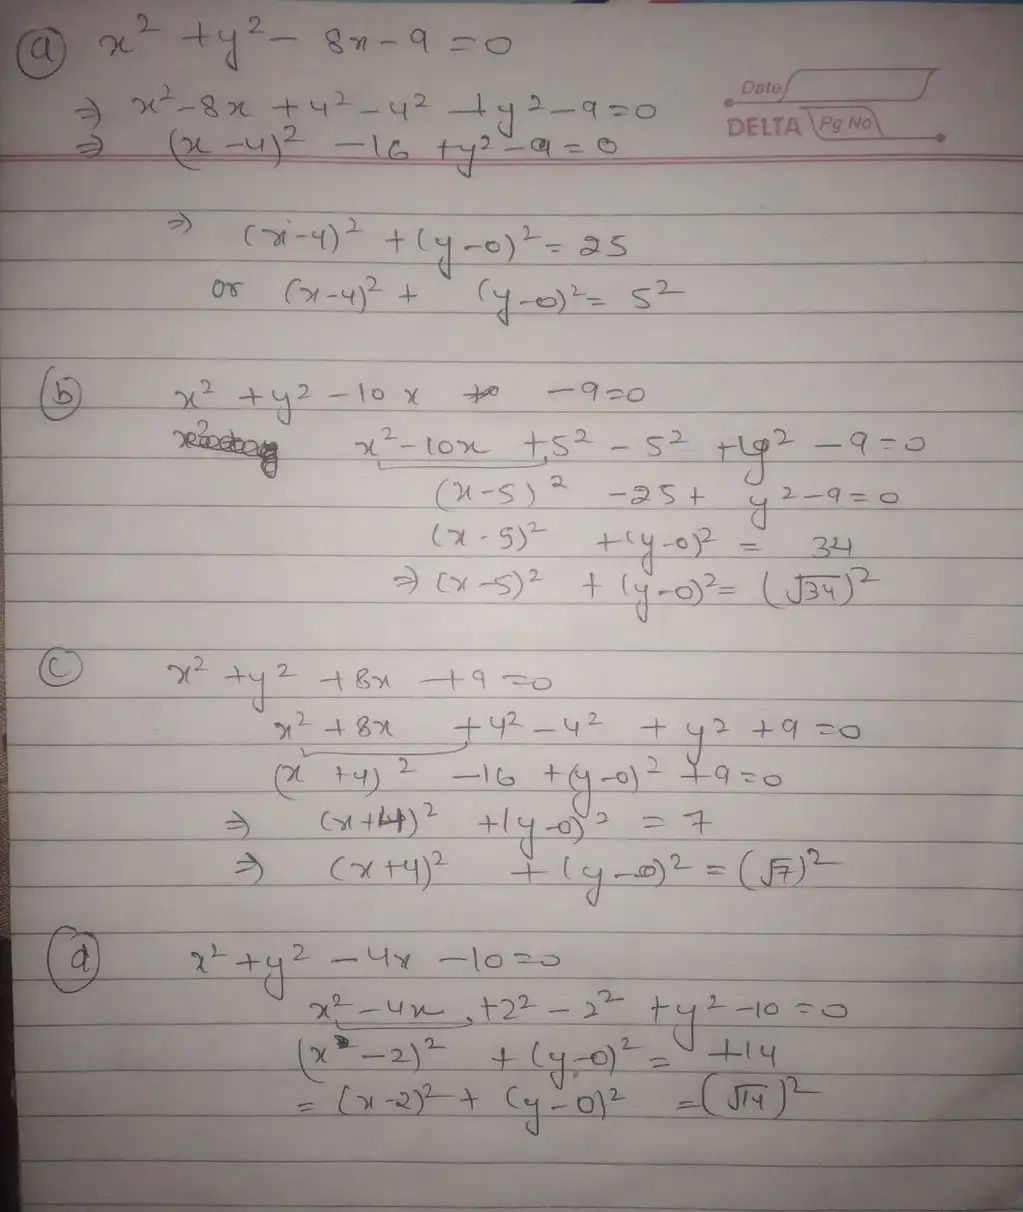 (a) x² + y² - 8x - 9 = 0
Date
⇒ x² - 8x + 4² - 4² + y² - 9 = 0
DELTA Pg No
⇒ (x - 4)² - 16 + y² - 9 = 0
⇒ (x - 4)² + (y - 0)² = 25
or (x - 4)² + (y - 0)² = 5²
(b) x² + y² - 10x - 9 = 0
x² - 10x + 5² - 5² + y² - 9 = 0
(x - 5)² - 25 + y² - 9 = 0
(x - 5)² + (y - 0)² = 34
⇒ (x - 5)² + (y - 0)² = (√34)²
(c) x² + y² + 8x + 9 = 0
x² + 8x + 4² - 4² + y² + 9 = 0
(x + 4)² - 16 + (y - 0)² + 9 = 0
⇒ (x + 4)² + (y - 0)² = 7
⇒ (x + 4)² + (y - 0)² = (√7)²
(d) x² + y² - 4x - 10 = 0
x² - 4x + 2² - 2² + y² - 10 = 0
(x - 2)² + (y - 0)² = +14
= (x - 2)² + (y - 0)² = (√14)²